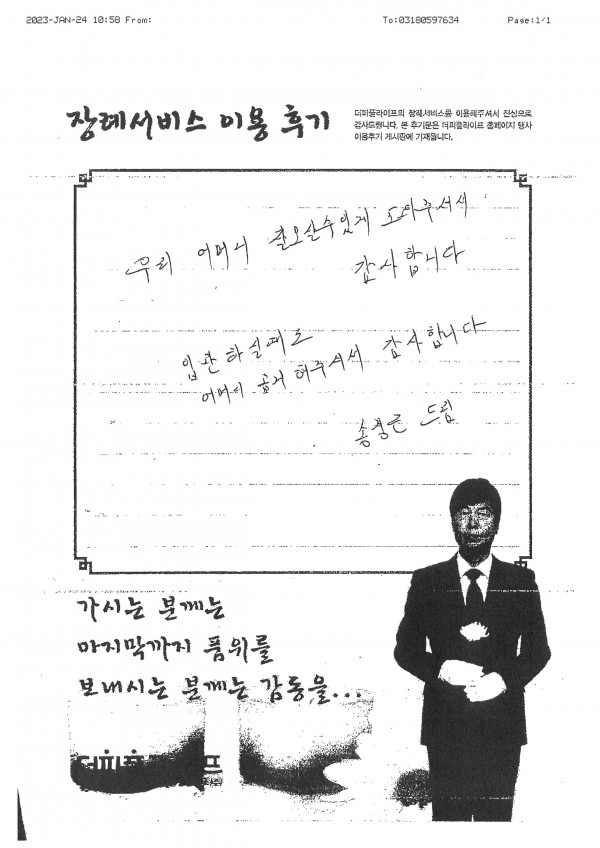 2023-JAN-24 10:58 From: To:03180597634 Page:1/1
장례서비스 이용 후기
더피플라이프의 장례서비스를 이용해주셔서 진심으로
감사드립니다. 본 후기문은 더피플라이프 홈페이지 행사
이용후기 게시판에 기재됩니다.
우리 어머니 잘모실수있게 도와주셔서
감사합니다
입관하실때도
어머니 곱게 해주셔서 감사합니다
드림
가시는 분께는
마지막까지 품위를
보내시는 분께는 감동을...